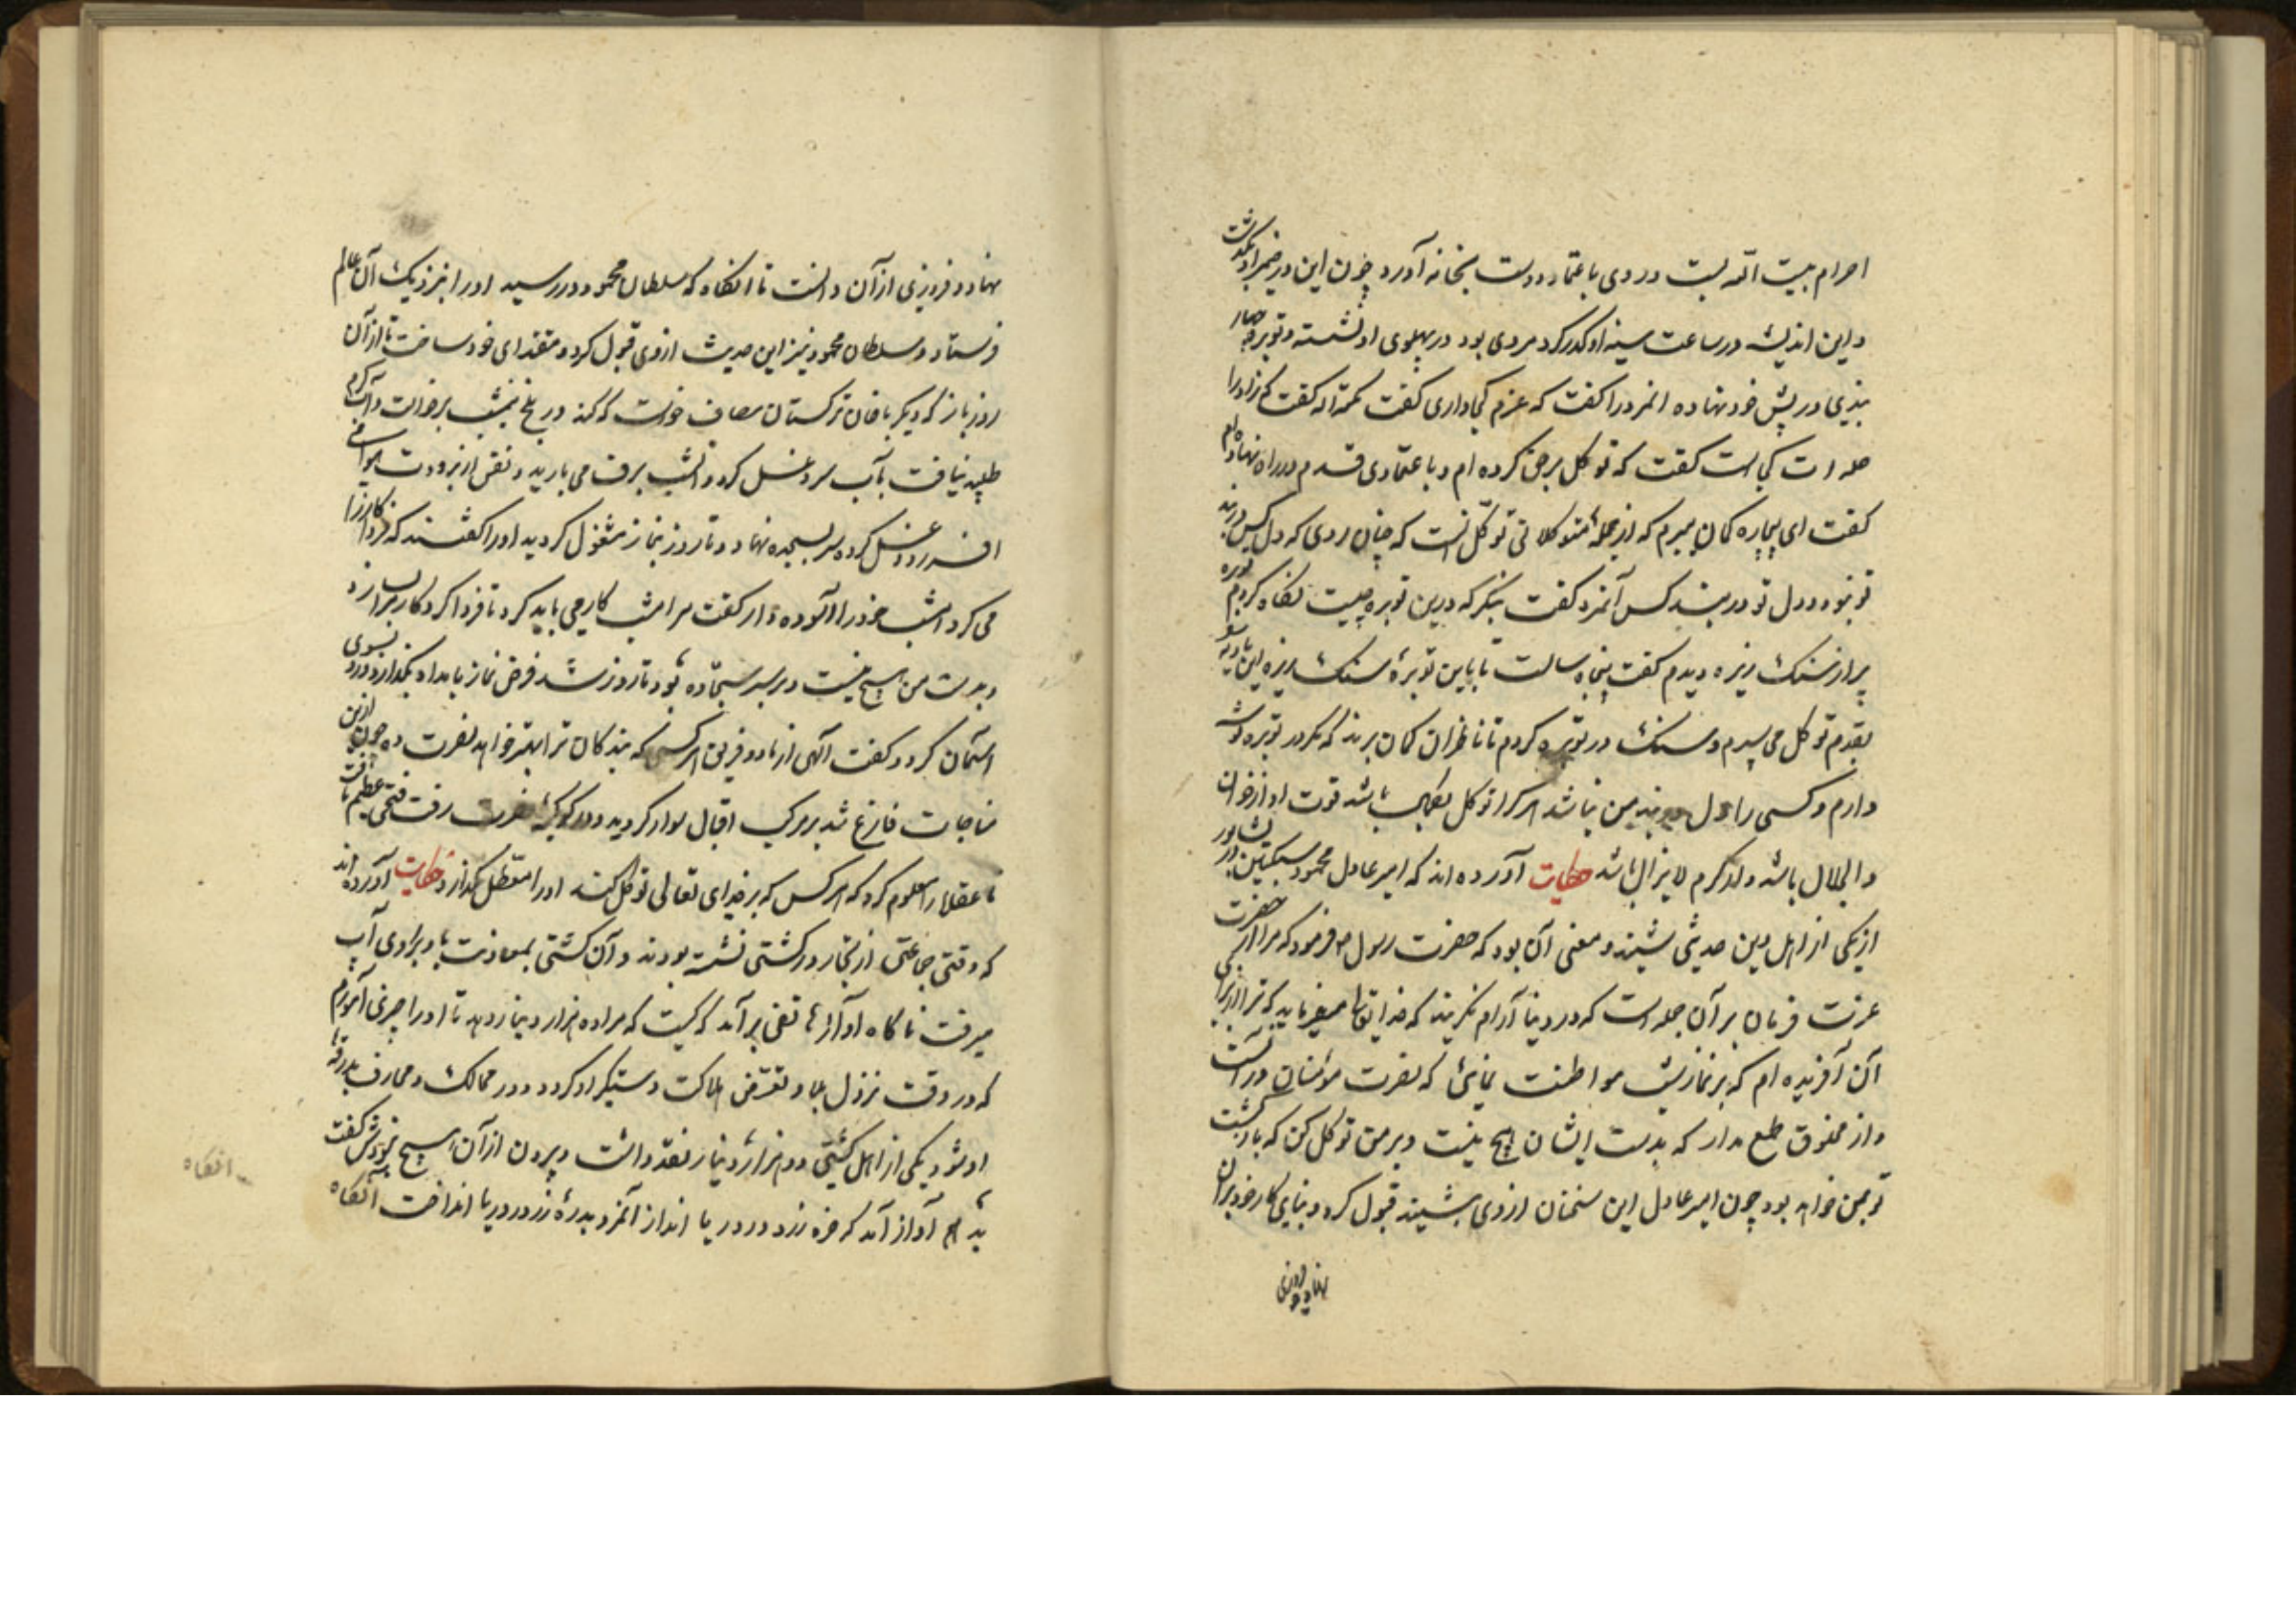 احرام بیت الله بست و روی باعتماد دوست بخانه آورد چون این در ضمیر او بگذشت
و این اندیشه در ساعت سینه او گذر کرد مردی بود در پهلوی او نشسته و توبره
در پیش خود نهاده آنمرد را کفت که عزم کجا داری کفت بمکه کفت زاد را
کجاست کفت که توکل بر حق کرده ام و باعتمادی قدم در راه نهاده ام
کفت ای بیچاره کمان میبرم که از جمله متوکلانی توکل آنست که چنان روی که دل کس در بند
تو نبود و دل تو در بند کس آنمرد کفت بنکر که درین توبره چیست نکاه کردم توبره
پر از سنک ریزه دیدم کفت پنجاه سالست تا باین توبرهٔ سنک ریزه این بادیه
بقدم توکل می سپرم و سنک در توبره کردم تا ناظران کمان برند که مکر در توبره توشه
دارم و کسی را دل در بند من نباشد هر کرا توکل بکمال باشد قوت او از خوان
والجلال باشد و لذ کرم لایزال باشد حکایت آورده اند که امیر عادل محمود سبکتکین در نشابور
از یکی از اهل دین حدیثی شنید و معنی آن بود که حضرت رسول ص فرمود که مرا از حضرت
عزت فرمان بر آن جمله است که در دنیا آرام نکیرید که خدایتعالی میفرماید که ترا از برای
آن آفریده ام که بر نماز شب مواظبت نمائی که نصرت مؤمنان در آنست
و از مخلوق طمع مدار که بدست ایشان هیچ نیست و بر من توکل کن که بازکشت
تو بمن خواهد بود چون امیر عادل این سخنان از وی بشنید قبول کرد و بنای کار خود بر آن
نهاد و فیروزی
نهاد و فروزی از آن دانست تا آنکاه که سلطان محمود در رسید او را بنزدیک آن عالم
فرستاد و سلطان محمود نیز این حدیث از وی قبول کرد و مقتدای خود ساخت تا از آن
روز باز که دیکر با خان ترکستان مصاف خواست که کند در بلخ نیمشب برخاست و آب کرم
طلبید نیافت بآب سرد غسل کرد و آنشب برف می بارید و نفس از برودت هوا می
افسرد و غسل کرده سر بسجده نهاد و تا روز بنماز مشغول کردید او را کفتند که فردا کارزار
می کرد امشب خود را آسوده دار کفت مرا امشب کار می باید کرد تا فردا کردکار کار بسازد
و بدست من هیچ نیست و بر سر سجاده بود تا روز شد فرض نماز بامداد بکذارد و رو بسوی
آسمان کرد و کفت الهی از ما دو فریق هر کسی که بندکان ترا بهتر خواهد نصرت ده چون ازین
مناجات فارغ شد بر مرکب اقبال سوار کردید و در کوکبهٔ نصرت رفت فتحی عظیم یافت
تا عقلا را معلوم کردد که هر کس که بر خدای تعالی توکل کند او را معطل نکذارد حکایت آورده اند
که وقتی جماعتی از تجار در کشتی نشسته بودند و آن کشتی بمعاونت باد بر روی آب
میرفت ناکاه آواز هاتفی برآمد که کیست که مرا ده هزار دینار دهد تا او را چیزی آموزم
که در وقت نزول بلا و تعرض هلاکت دستکیر او کردد و در ممالک و مخاوف بدرقهٔ
او شود یکی از اهل کشتی ده هزار دینار نقد داشت و بیرون از آن هیچ نبودش کفت
بدهم آواز آمد که خره زرد در دریا انداز آنمرد بدرهٔ زر در دریا انداخت آنکاه
آنکاه